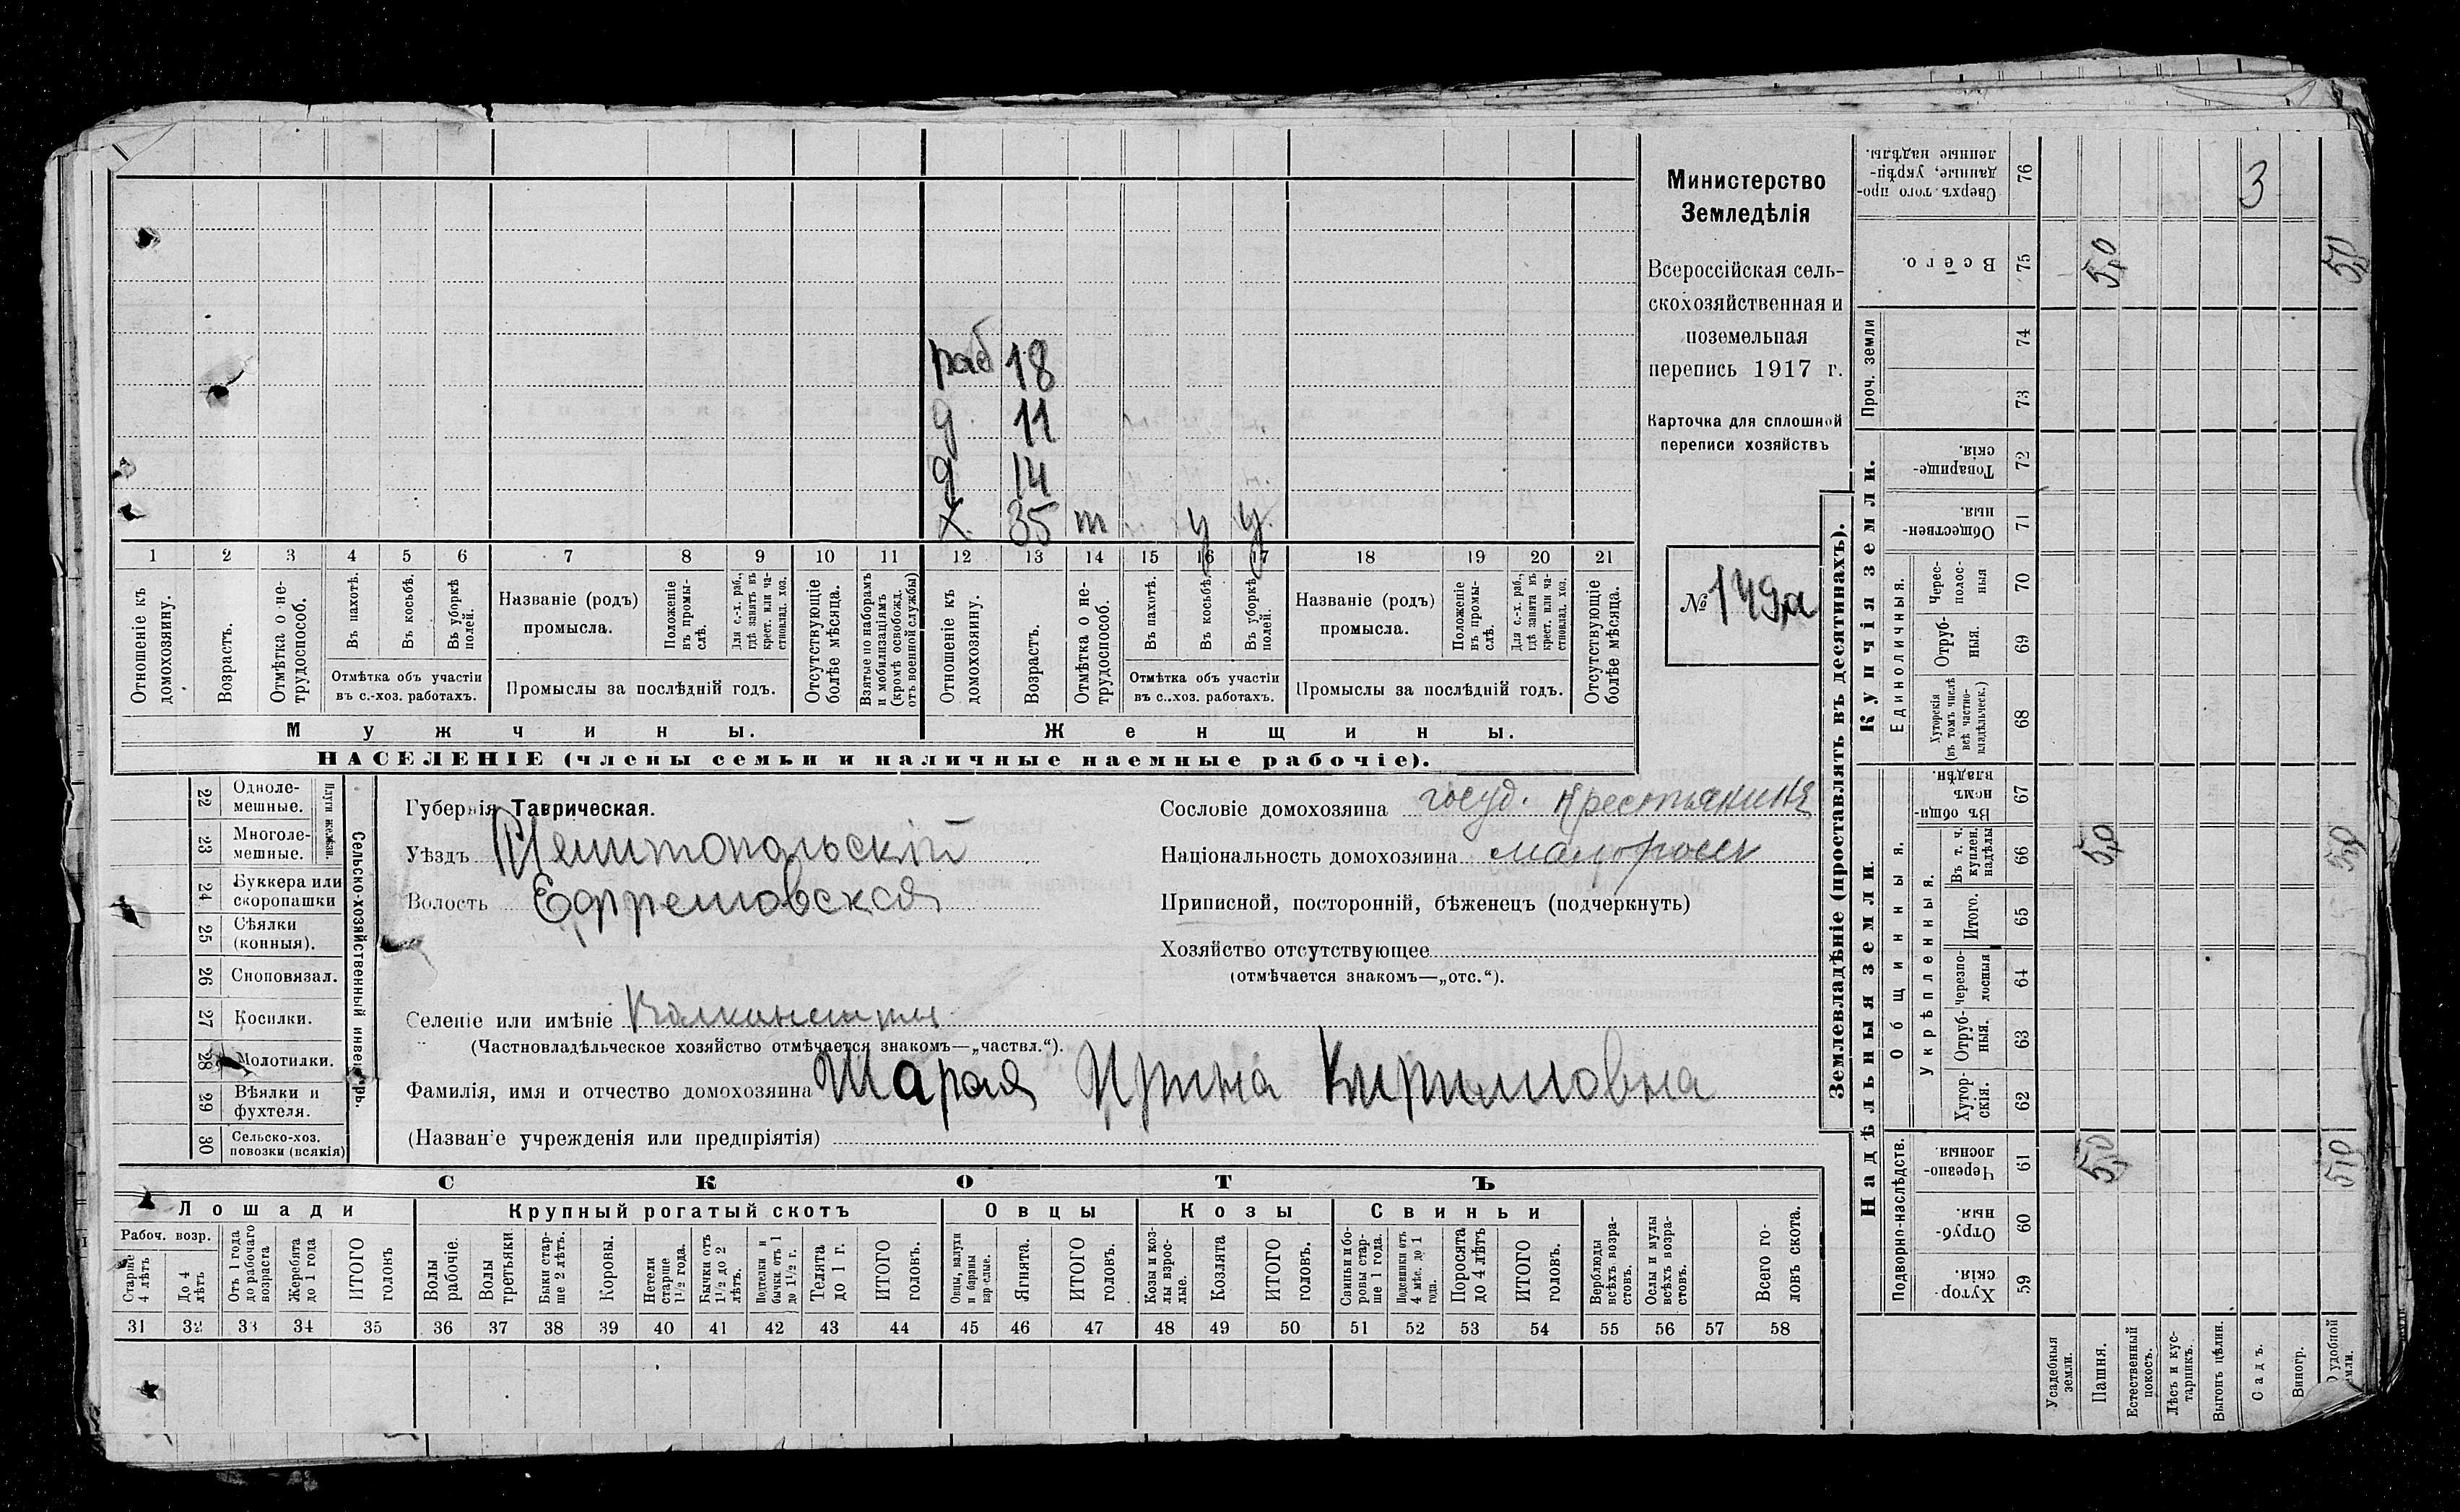 раб 18
д. 11
д 14
х. 35 т у у.
1 2 3 4 5 6 7 8 9 10 11 12 13 14 15 16 17 18 19 20 21
Отношеніе къ домохозяину.
Возрастъ.
Отмѣтка о не-
трудоспособ.
Въ пахотѣ.
Въ косьбѣ.
Въ уборкѣ полей.
Отмѣтка объ участіи
въ с.-хоз. работахъ.
Названіе (родъ)
промысла.
Положеніе
въ промы-
слѣ.
Для с.-х. раб.,
гдѣ занятъ въ
крест. или ча-
стновлад. хоз.
Промыслы за послѣдній годъ.
Отсутствующіе
болѣе мѣсяца.
Взятые по наборамъ
и мобилизаціямъ
(кромѣ освобожд.
отъ военной службы)
Отношеніе къ
домохозяину.
Возрастъ.
Отмѣтка о не-
трудоспособ.
Въ пахотѣ.
Въ косьбѣ.
Въ уборкѣ
полей.
Отмѣтка объ участіи
въ с.-хоз. работахъ.
Названіе (родъ)
промысла.
Положеніе
въ промы-
слѣ.
Для с.-х. раб.,
гдѣ занята въ
крест. или ча-
стновлад. хоз.
Промыслы за послѣдній годъ.
Отсутствующіе
болѣе мѣсяца.
Мужчины. Женщины.
НАСЕЛЕНІЕ (члены семьи и наличные наемные рабочіе).
Министерство
Земледѣлія
Всероссійская сель-
скохозяйственная и
поземельная
перепись 1917 г.
Карточка для сплошной
переписи хозяйствъ
№ 149а
22 Одноле-
мешные.
23 Многоле-
мешные.
Плуги желѣзн.
24 Буккера или
скоропашки
25 Сѣялки
(конныя).
26 Сноповязал.
27 Косилки.
28 Молотилки.
29 Вѣялки и
фухтеля.
30 Сельско-хоз.
повозки (всякія)
Сельско-хозяйственный инвентарь.
Губернія Таврическая.
Уѣздъ Мелитопольскій
Волость Ефремовская
Селеніе или имѣніе
(Частновладѣльческое хозяйство отмѣчается знакомъ—„частвл.“).
Фамилія, имя и отчество домохозяина Шарая Ирина Кирилловна
(Названіе учрежденія или предпріятія)
Сословіе домохозяина госуд. крестьянинъ
Національность домохозяина малоросс
Приписной, посторонній, бѣженецъ (подчеркнуть)
Хозяйство отсутствующее
(отмѣчается знакомъ—„отс.“).
СКОТЪ
Лошади Крупный рогатый скотъ Овцы Козы Свиньи
Рабоч. возр.
Старше
4 лѣтъ
До 4
лѣтъ
Отъ 1 года
до рабочаго
возраста
Жеребята
до 1 года
ИТОГО
головъ
Волы
рабочіе.
Волы
третьяки.
Быки стар-
ше 2 лѣтъ.
Коровы.
Нетели
старше
1½ года.
Бычки отъ
1½ до 2
лѣтъ.
Подтелки и
бычки отъ 1
до 1½ г.
Телята
до 1 г.
ИТОГО
головъ.
Овцы, валухи
и бараны
взрослые.
Ягнята.
ИТОГО
головъ.
Козы и коз-
лы взрос-
лые.
Козлята
ИТОГО
головъ.
Свиньи и бо-
ровы стар-
ше 1 года.
Подсвинки отъ
4 мѣс. до 1
года.
Поросята
до 4 лѣтъ
ИТОГО
головъ.
Верблюды
всѣхъ возра-
стовъ.
Ослы и мулы
всѣхъ возра-
стовъ.
Всего го-
ловъ скота.
31 32 33 34 35 36 37 38 39 40 41 42 43 44 45 46 47 48 49 50 51 52 53 54 55 56 57 58
Землевладѣніе (проставлять въ десятинахъ).
Надѣльныя земли. Купчія земли.
Проч. земли
Подворно-наслѣдств.
Общинныя.
Укрѣпленныя.
Единоличныя.
Сверхъ того про-
данные, укрѣп-
ленные надѣлы.
76 3
Всего.
75 5,0 5,0
74
73
Товарище-
скія.
72
Обществен-
ныя.
71
Черес-
полос-
ныя
70
Отруб-
ныя.
69
Хуторскія
(въ томъ числѣ
всѣ частно-
владѣльческ.)
68
Въ общин-
номъ
владѣн.
67
Въ т. ч.
куплен.
надѣлы
66 5,0 5,0
Итого.
65
Черезпо-
лосныя
64
Отруб-
ныя.
63
Хутор-
скія.
62
Черезпо-
лосныя.
61 5,0 5,0
Отруб-
ныя.
60
Хутор-
скія.
59
Усадебныя
земли.
Пашня.
Естественный
покосъ.
Лѣсъ и кус-
тарникъ.
Выгонъ цѣлин.
Садъ.
Виногр.
удобной